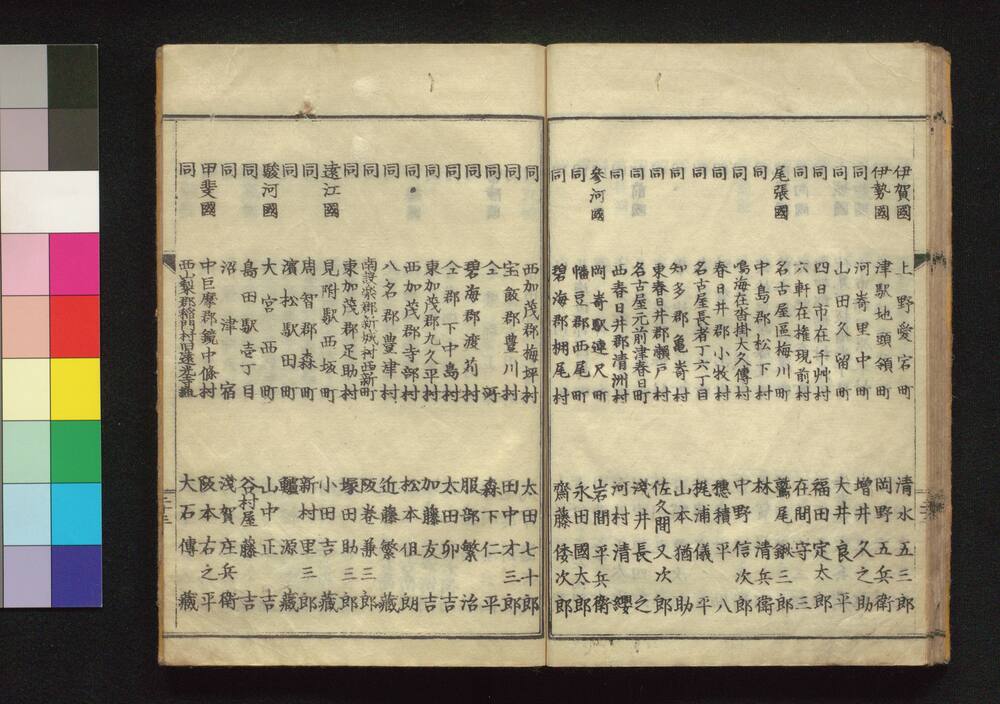 伊賀國 上野愛宕町 清水五三郎
伊勢國 津駅地頭領町 岡野五兵衛
同 河嵜里中町 增井久之助
同 山田久留町 大井良平
同 四日市在千艸村 福田定太郎
同 六軒在権現前村 在間守三
尾張國 名古屋區梅川町 鷲尾鍬三郎
同 中島郡松下村 林清兵衛
同 鳴海在沓掛大久傳村 中野信次郎
同 春日井郡小牧村 穗積平八
同 名古屋長者丁六丁目 梶浦儀平
同 知多郡亀嵜村 山本猶助
同 東春日井郡瀬戸村 佐久間又次郎
同 名古屋元前津春日町 淺井長之
同 西春日井郡清洲村 河村清纓
參河國 岡嵜駅連尺町 岩間平兵衛
同 幡豆郡西尾町 永田國太郎
同 碧海郡棚尾村 齋藤倭次郎
同 西加茂郡梅坪村 太田七十郎
同 宝飯郡豊川村 田中才三郎
同 仝河 森下仁平
同 碧海郡渡苅村 服部繁治
同 仝郡下中島村 太田卯吉
同 東加茂郡九久平村 加藤友吉
同 西加茂郡寺部村 松本伹朗
同 八名郡豊津村 近藤繁藏
同 南設楽郡新城村西新町 阪巻兼三郎
同 東加茂郡足助村 塚田助三郎
遠江國 見附駅西坂町 小田吉藏
同 周智郡森町 新村里三郎
同 濱松駅田町 轤源藏
駿河國 大宮西町 山中正吉
同 島田駅壱丁目 谷村屋藤吉
同 沼津宿 淺賀庄兵衛
甲斐國 中巨摩郡鏡中條村 阪本右之平
同 西山梨郡稲門村旧遠光寺 大石傳藏